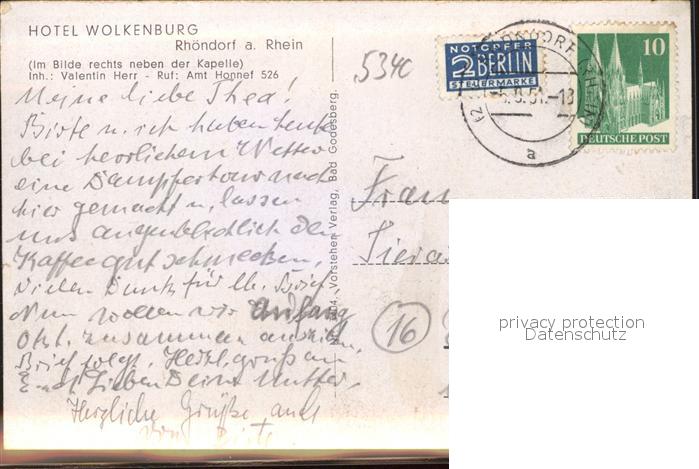 HOTEL WOLKENBURG
Rhöndorf a. Rhein
(Im Bilde rechts neben der Kapelle)
Inh.: Valentin Herr - Ruf: Amt Honnef 526
5340
NOTOPFER
2 BERLIN
STEUERMARKE
10
DEUTSCHE POST
-5.9.51.-18
a
Meine liebe Thea!
Birte u. ich haben heute
bei herrlichem Wetter
eine Dampfertour nach
hier gemacht u. lassen
uns augenblicklich den
Kaffee gut schmecken.
Vielen Dank für lb. Brief.
Nun wollen wir Anfang
Okt. zusammen
Brief folgt. Herzl. Grüße an
Euch Lieben Deine Mutter.
Herzliche Grüße auch
von Birte
Vorstehen Verlag, Bad Godesberg.
Frau
16
privacy protection
Datenschutz